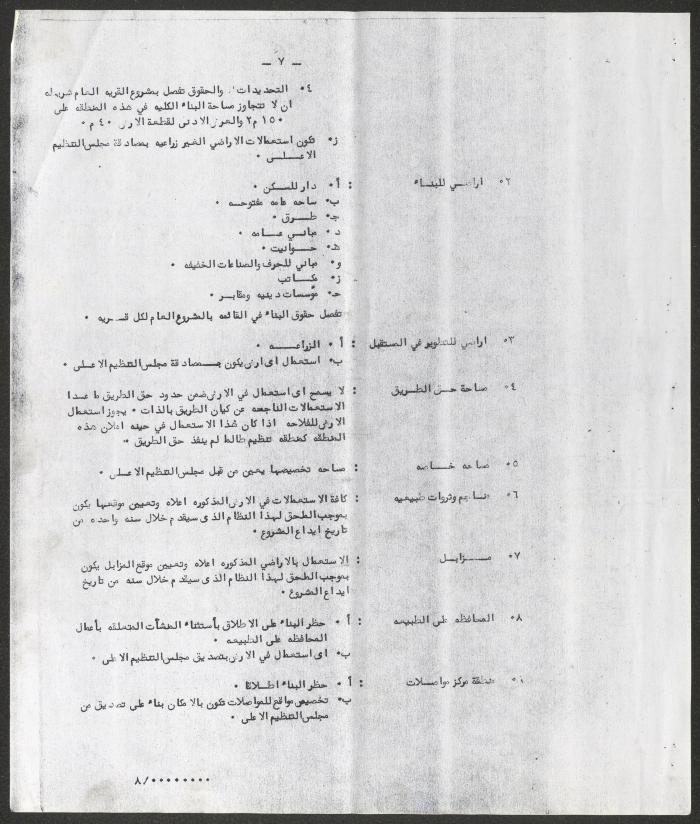 — ٧ —
٤٠ التحديدات، والحقوق تفصل بمشروع القريه العام شريطه
ان لا تتجاوز مساحة البناء الكليه في هذه المنطقه على
١٥٠ م٢ والعرض الادنى لقطعة الارض ٤٠ م٠
ز٠ تكون استعمالات الاراضي الغير زراعيه بمصادقة مجلس التنظيم
الاعلــى ٠
٠٢ اراضـي للبنـاء : أ٠ دار للسـكن ٠
ب٠ ساحه عامه مفتوحـه ٠
جـ٠ طــرق ٠
د٠ مبانـي عــامه ٠
هـ٠ حــوانيت ٠
و٠ مباني للحرف والصناعات الخفيفه ٠
ز٠ مكــاتب
حـ٠ مؤسسات دينيه ومقابـر ٠
تفصل حقوق البناء في القائمه بالمشروع العام لكل قـريه ٠
٠٣ اراضي للتطوير في المستقبل : أ٠ الزراعــه ٠
ب٠ استعمال اى ارض يكون بـمصادقة مجلس التنظيم الاعلى ٠
٠٤ مساحة حـق الطـريق : لا يسمح اى استعمال في الارض ضمن حدود حق الطريق ما عـدا
الاستعمالات الناجمه عن كيان الطريق بالذات ٠ يجوز استعمال
الارض للفلاحه اذا كان هذا الاستعمال في حينه اعلان هذه
المنطقه كمنطقه تنظيم طالما لم ينفذ حق الطريق ٠
٠٥ مساحه خـاصه : مساحه تخصيصها يعين من قبل مجلس التنظيم الاعلى ٠
٠٦ مناجم وثروات طبيعيه : كافة الاستعمالات في الارض المذكوره اعلاه وتعيين موقعها يكون
بموجب الملحق لهذا النظام الذى سيقدم خلال سنه واحده من
تاريخ ايداع المشروع ٠
٠٧ مــزابـل : الاستعمال بالاراضي المذكوره اعلاه وتعيين موقع المزابل يكون
بموجب الملحق لهذا النظام الذى سيقدم خلال سنه من تاريخ
ايداع المشروع ٠
٠٨ المحافظه على الطبيعه : أ ٠ حظر البناء على الاطلاق بأستثناء المنشآت المتعلقه بأعمال
المحافظه على الطبيعه ٠
ب٠ اى استعمال في الارض بتصديق مجلس التنظيم الاعلى ٠
منطقة مركز مواصـلات : أ٠ حظر البناء اطـلاقا ٠
ب٠ تخصيص مواقع للمواصلات تكون بالامكان بناء على تصديق من
مجلس التنظيم الاعلى ٠
٨/٠٠٠٠٠٠٠٠